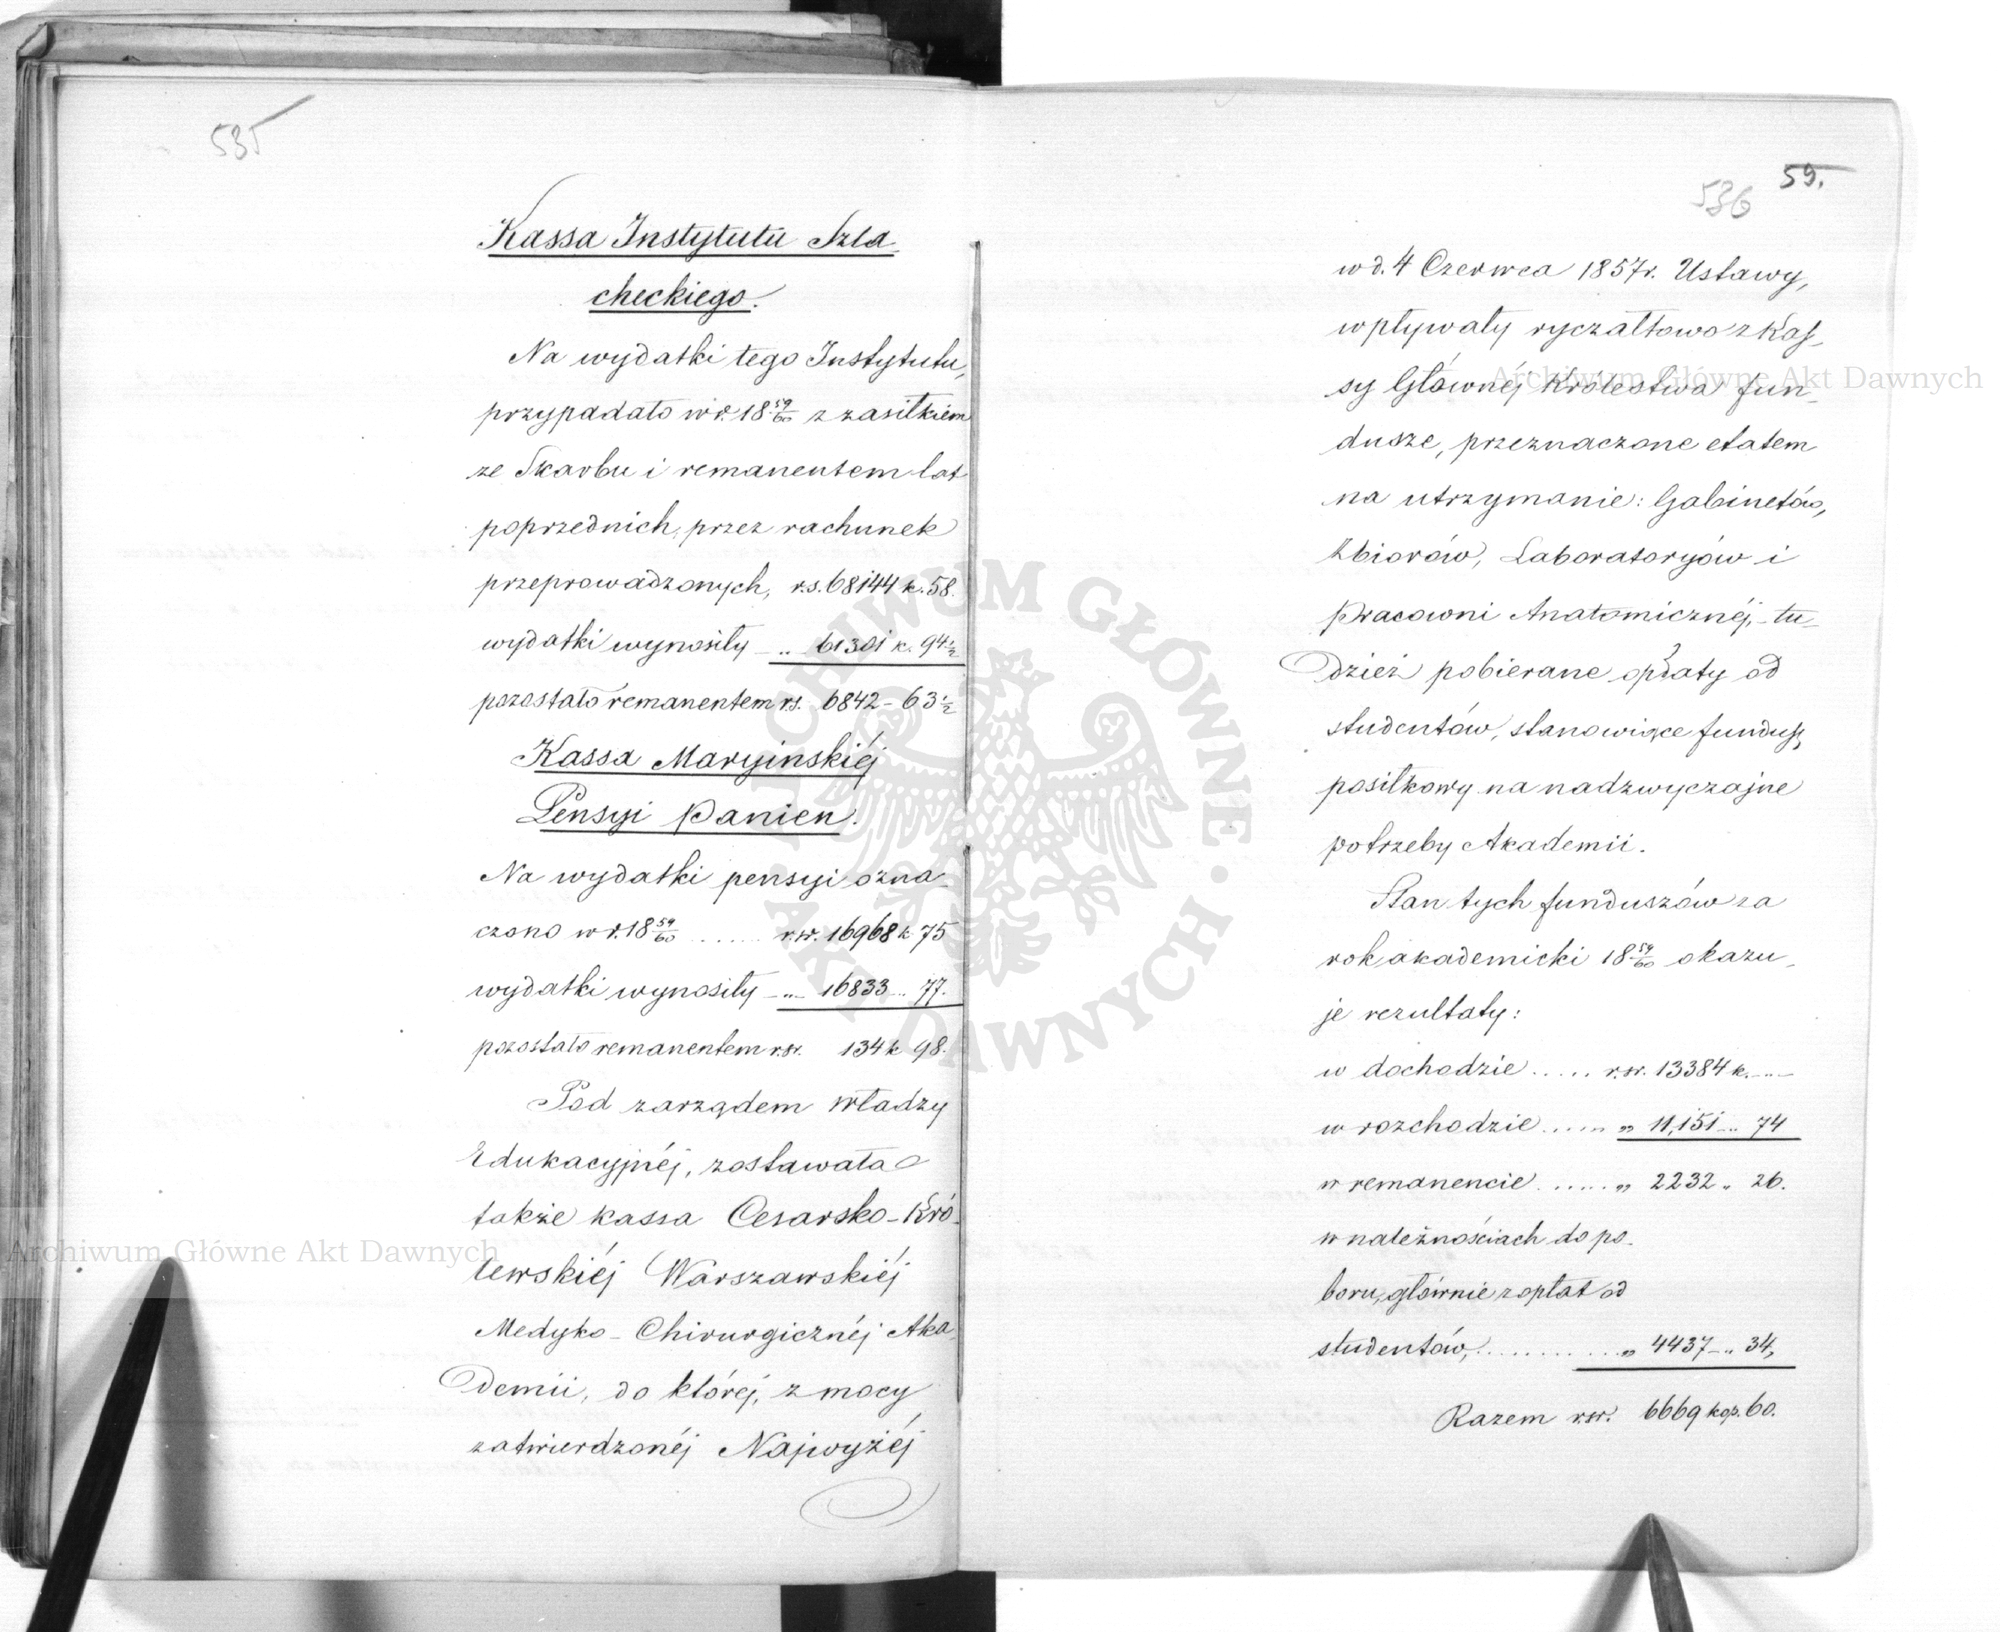 535
Kassa Instytutu Szla
checkiego.
Na wydatki tego Instytutu,
przypadało w r. 18 59/60 z zasiłkiem
ze Skarbu i remanentem lat
poprzednich, przez rachunek
przeprowadzonych, r.s. 68144 k. 58.
wydatki wynosiły – „ 61301 k. 94 1/2
pozostało remanentem rs. 6842 – 63 1/2
Kassa Maryinskiéj
Pensyi Panien.
Na wydatki pensyi ozna-
czono w r. 18 59/60 ...... r.sr. 16968 k 75
wydatki wynosiły – „ – 16833 „ 77.
pozostało remanentem r.sr. 134 k 98.
Pod zarządem władzy
Edukacyjnéj, zostawała
także kassa Cesarsko-Kró-
lewskiéj Warszawskiéj
Medyko-Chirurgicznéj Aka-
demii, do której, z mocy
zatwierdzonéj Najwyżéj
536
59.
w d. 4 Czerwca 1857 r. Ustawy,
wpływały ryczałtowo z Kas-
sy Głównéj Królestwa fun-
dusze, przeznaczone etatem
na utrzymanie: Gabinetów,
Zbiorów, Laboratoryów i
Pracowni Anatomicznéj, tu-
dzież pobierane opłaty od
studentów, stanowiące fundusz
posiłkowy na nadzwyczajne
potrzeby Akademii.
Stan tych funduszów za
rok akademicki 18 59/60 okazu-
je rezultaty:
w dochodzie ..... r.sr. 13384 k. – „ –
w rozchodzie ..... „ 11,151 „ 74
w remanencie ...... „ 2232 „ 26.
w należnościach do po-
boru, głównie z opłat od
studentów, ............ „ 4437 – „ 34,
Razem r.sr. 6669 kop. 60.
Archiwum Główne Akt Dawnych
Archiwum Główne Akt Dawnych
ARCHIWUM GŁÓWNE · AKT DAWNYCH ·